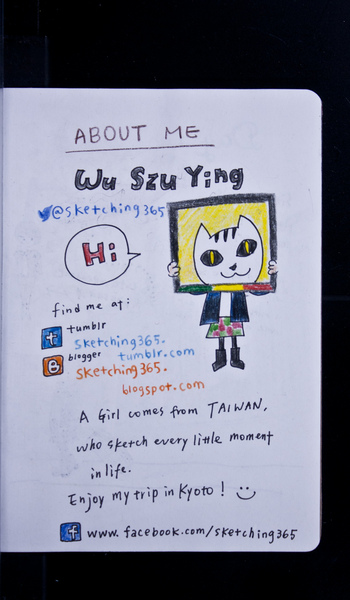 ABOUT ME
Wu Szu Ying
@sketching365
Hi
find me at:
t tumblr
sketching365.
tumblr.com
B blogger
sketching365.
blogspot.com
A Girl comes from TAIWAN,
who sketch every little moment
in life.
Enjoy my trip in Kyoto! :)
f www.facebook.com/sketching365